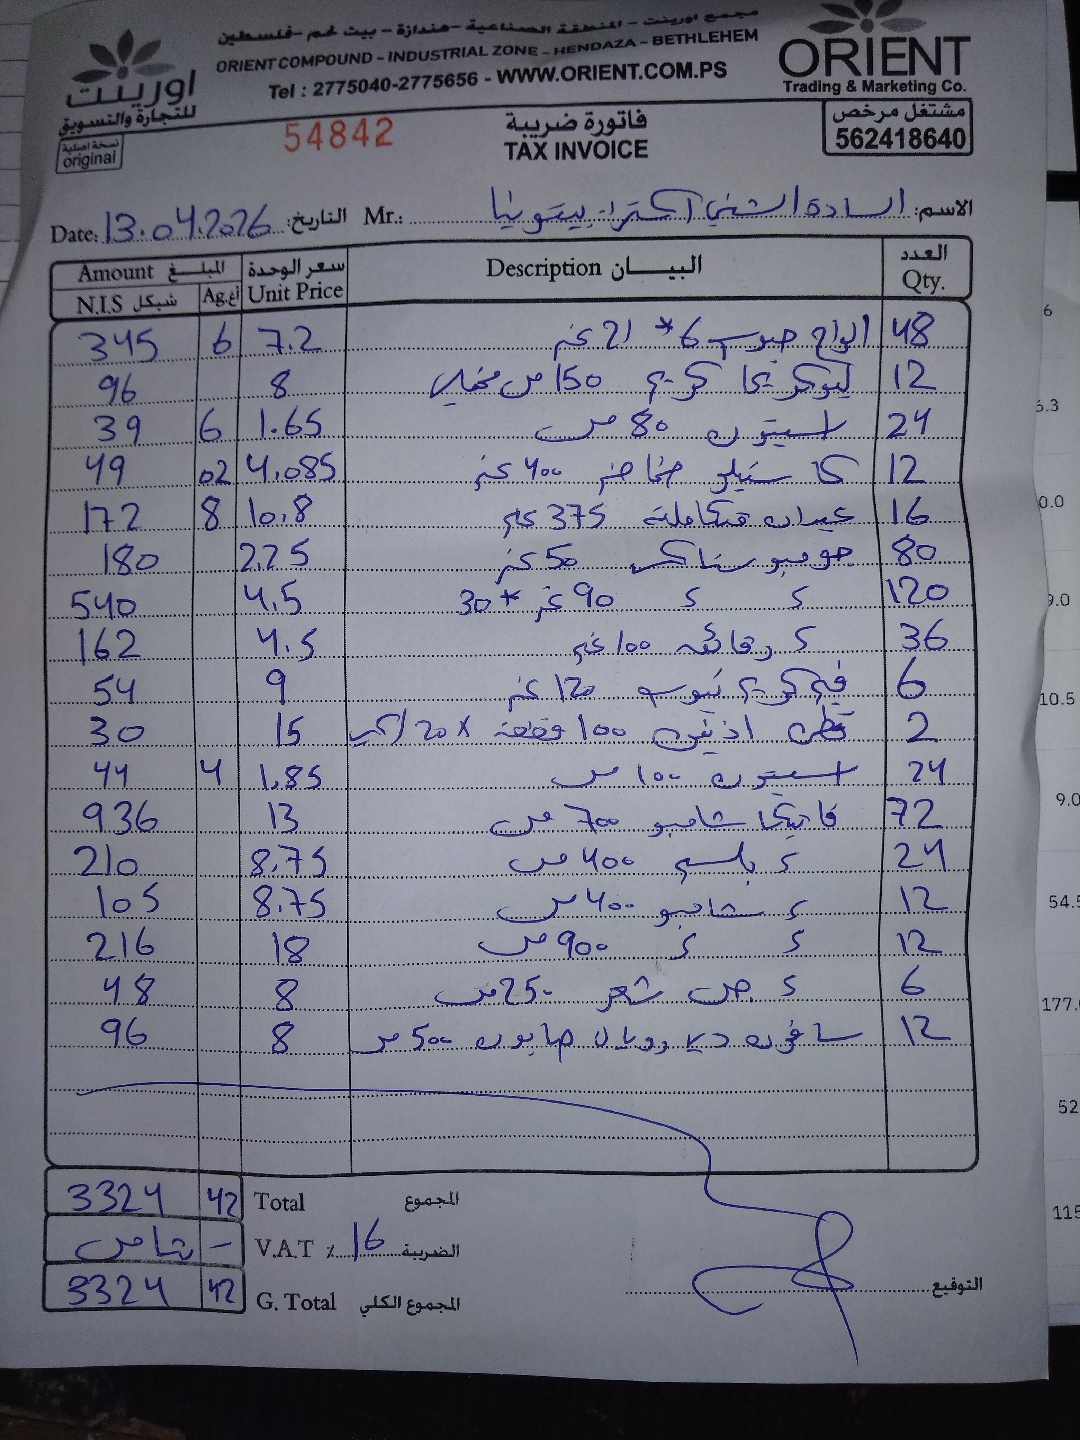 مجمع اورينت - المنطقة الصناعية - هندازة - بيت لحم - فلسطين
ORIENT COMPOUND - INDUSTRIAL ZONE - HENDAZA - BETHLEHEM
Tel : 2775040-2775656 - WWW.ORIENT.COM.PS
اورينت
للتجارة والتسويق
نسخة اصلية
original
ORIENT
Trading & Marketing Co.
مشتغل مرخص
562418640
54842
فاتورة ضريبة
TAX INVOICE
Date: 13.04.2026 التاريخ: Mr.: السادة الشني اكسترا - بيتونيا الاسم:
Amount المبلغ سعر الوحدة Description البيان العدد
N.I.S شيكل Ag. اغ Unit Price Qty.
345 6 7.2 الواح حبوب 6* 21 غم 48
96 8 كريم 150 مل 12
39 6 1.65 اسيتون 80 مل 24
49 02 4.085 400 غم 12
172 8 10.8 عيدان متكاملة 375 غم 16
180 2.25 جومبو سناك 50 غم 80
540 4.5 ״ ״ 90 غم * 30 120
162 4.5 ״ رقائق 100 غم 36
54 9 كريم تيوب 120 غم 6
30 15 قطن اذنين 100 قطعة × 20 2
44 4 1.85 اسيتون 100 مل 24
936 13 شامبو 700 مل 72
210 8.75 ״ بلسم 400 مل 24
105 8.75 ״ شامبو 400 مل 12
216 18 ״ ״ 900 مل 12
48 8 ״ جل شعر 250 مل 6
96 8 رويال صابون 500 مل 12
3324 42 Total المجموع
شامل - V.A.T ٪ 16 الضريبة
3324 42 G. Total المجموع الكلي
التوقيع
6
6.3
0.0
9.0
10.5
9.0
54.5
177.
52
115